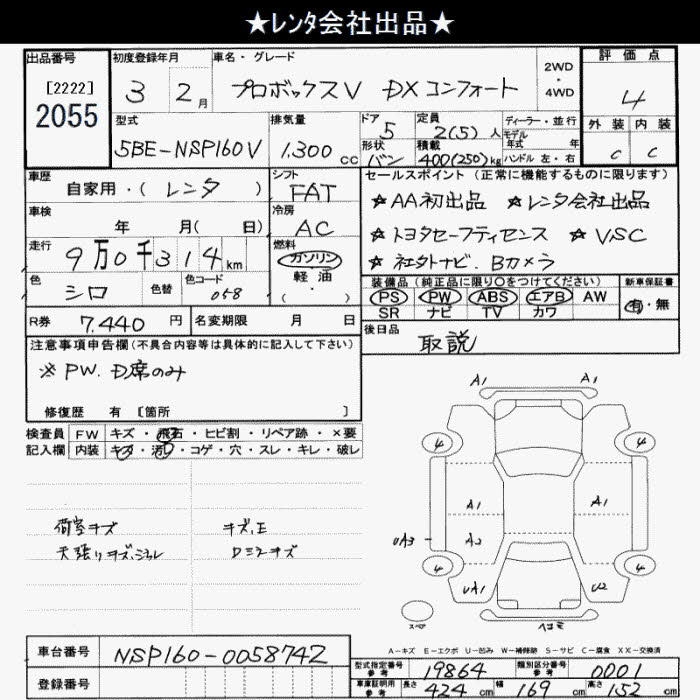 ★レンタ会社出品★
出品番号 初度登録年月 車名・グレード 2WD・4WD 評価点
[2222] 2055 3 2月 プロボックスV DXコンフォート 4
型式 排気量 ドア 定員 ディーラー・並行 外装 内装
5BE-NSP160V 1,300cc 5 2(5)人 モデル年式 年 C C
形状 積載
バン 400(250)kg ハンドル 左・右
車歴 シフト セールスポイント(正常に機能するものに限ります)
自家用・(レンタ) FAT ★AA初出品 ★レンタ会社出品
車検 冷房
年 月( 日) AC ★トヨタセーフティセンス ★VSC
走行 燃料
9万0千314km ガソリン ★社外ナビ.Bカメラ
色 色替 色コード 軽油 装備品(純正品に限り○をつけてください) 新車保証書
シロ 058 ・( ) PS PW ABS エアB AW 有・無
SR ナビ TV カワ
R券 7.440円 名変期限 月 日 後日品
取説
注意事項申告欄(不具合内容等は具体的に記入して下さい)
※PW.D席のみ
修復歴 有 [箇所 ]
検査員 FW キズ・飛石・ヒビ割・リペア跡・×要
記入欄 内装 キズ・汚レ・コゲ・穴・スレ・キレ・破レ
A1 A1
4 4
A1 A1
荷室キズ キズ,E
UA3 A2
天張りキズ.シュレ Dミラーキズ
4 4
UA1 U2
スペア ヘコミ
A-キズ E-エクボ U-凹み W-補修跡 S-サビ C-腐食 XX-交換済
車台番号 NSP160-0058742
型式指定番号 参考 19864 類別区分番号 参考 0001
登録番号
車庫証明用 参考 長さ 424cm 幅 169cm 高さ 152cm